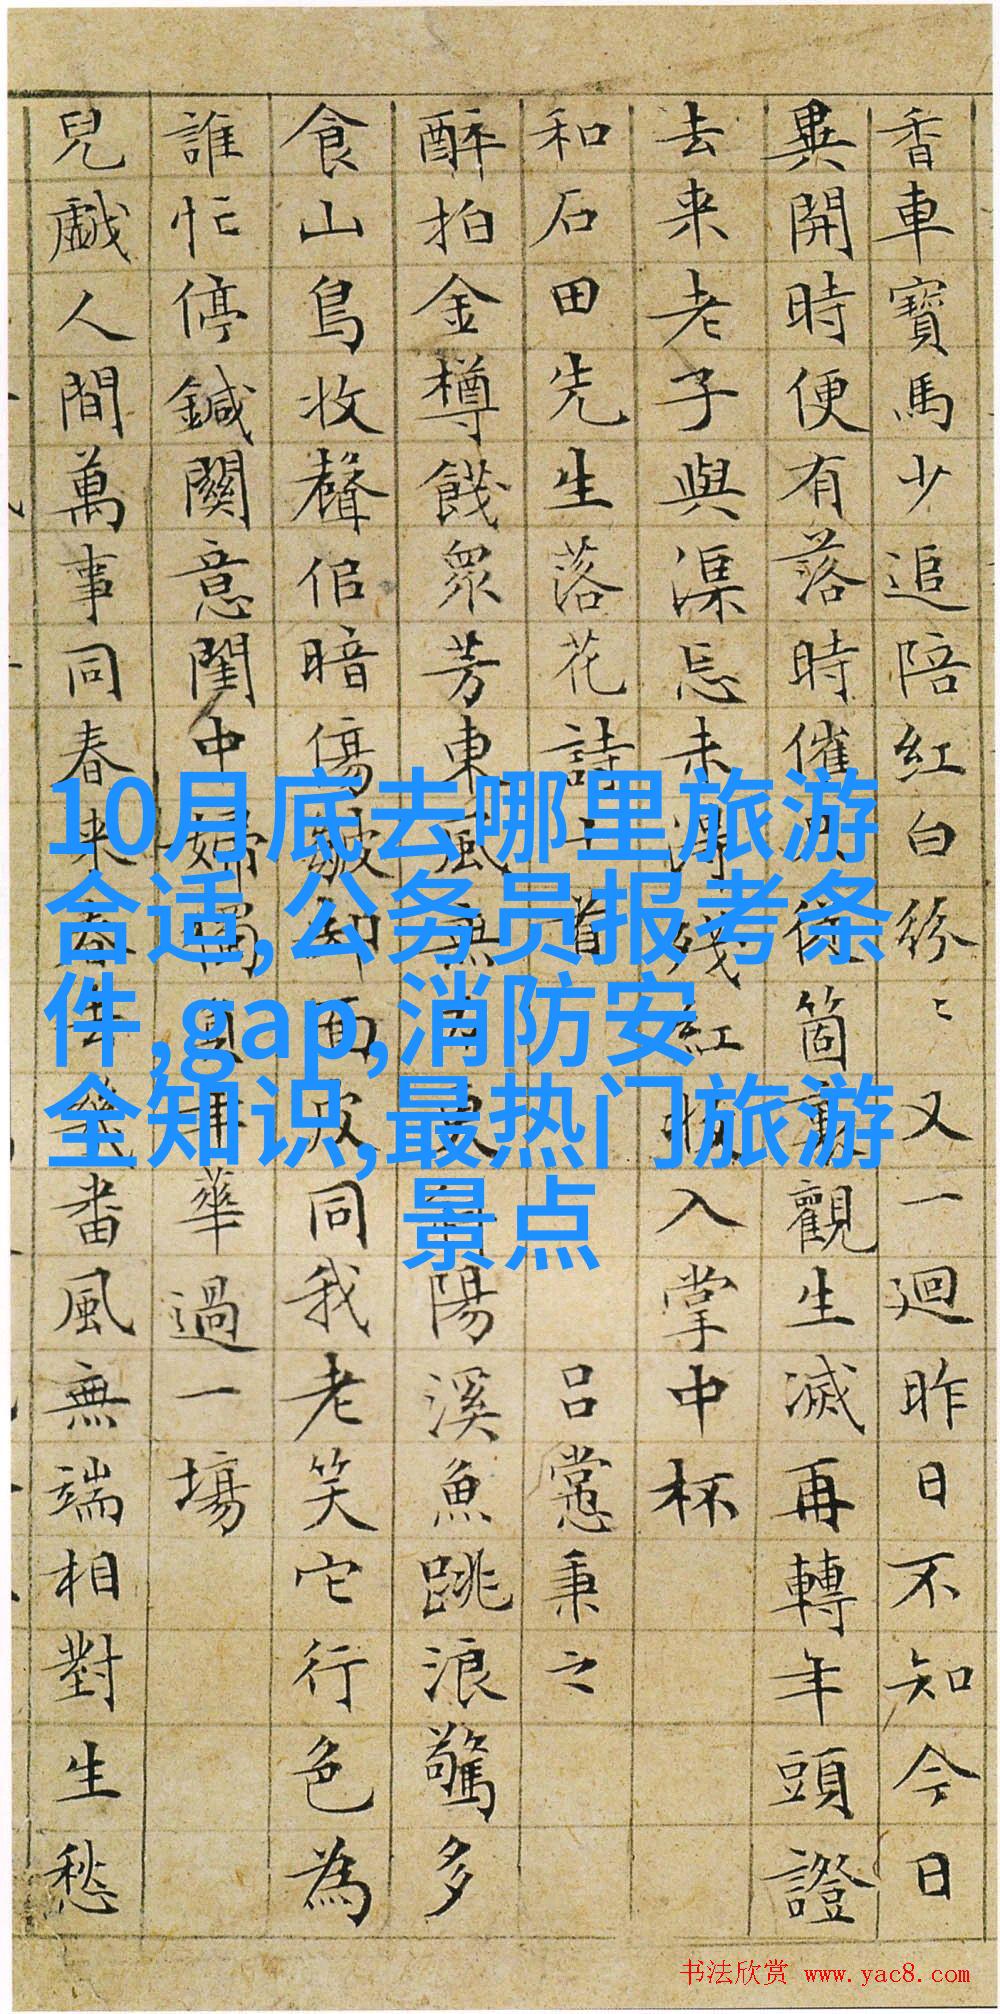 香車寶馬少追陪紅白紛〻又一迴昨日不知今日
異開時便有落時催箇觀生滅再轉年頭證
去来老子與渠忘未得残紅收入掌中杯
和石田先生落花詩十首 呂㦂秉之
醉拍金樽餞眾芳東風無陽溪魚跳浪驚多
食山鳥收聲倍暗傷皺却面皮同我老笑它行色為
誰忙停鍼關意閨中婦年華過一場
兒戯人間萬事同春来春去幾番風無端相對生愁
10月底去哪里旅游
合适,公务员报考条
件,gap,消防安
全知识,最热门旅游
景点
书法欣赏 www.yac8.com